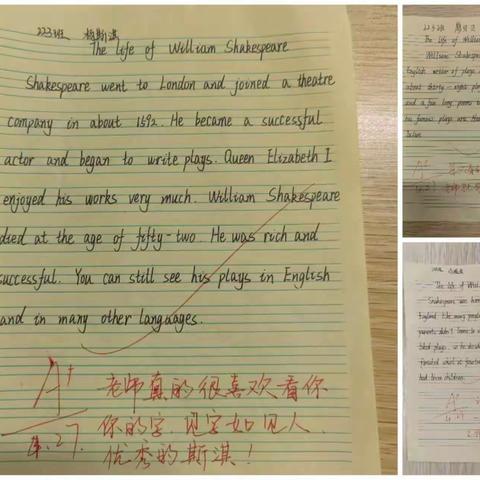 223班 杨斯淇
The life of William Shakespeare
Shakespeare went to London and joined a theatre
company in about 1592. He became a successful
actor and began to write plays. Queen Elizabeth I
enjoyed his works very much. William Shakespeare
died at the age of fifty-two. He was rich and
successful. You can still see his plays in English
and in many other languages.
A+
4.27.
老师真的很喜欢看你
你的字,见字如见人,
优秀的斯淇!
223班
The life of William
William Shakespe
English writer of plays a
about thirty-eight play
and a few long poems
his famous plays are
A+
The life of Will
Shakespeare was born
England. Like many people
parents didn't learn to
liked plays, so he decide
finished
had three children.
A+